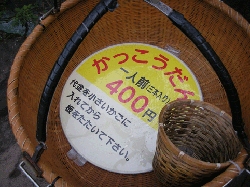 かっこうだん
一人前(三本入り)
400円
代金を小さいかごに
入れてから
板をたたいて下さい。